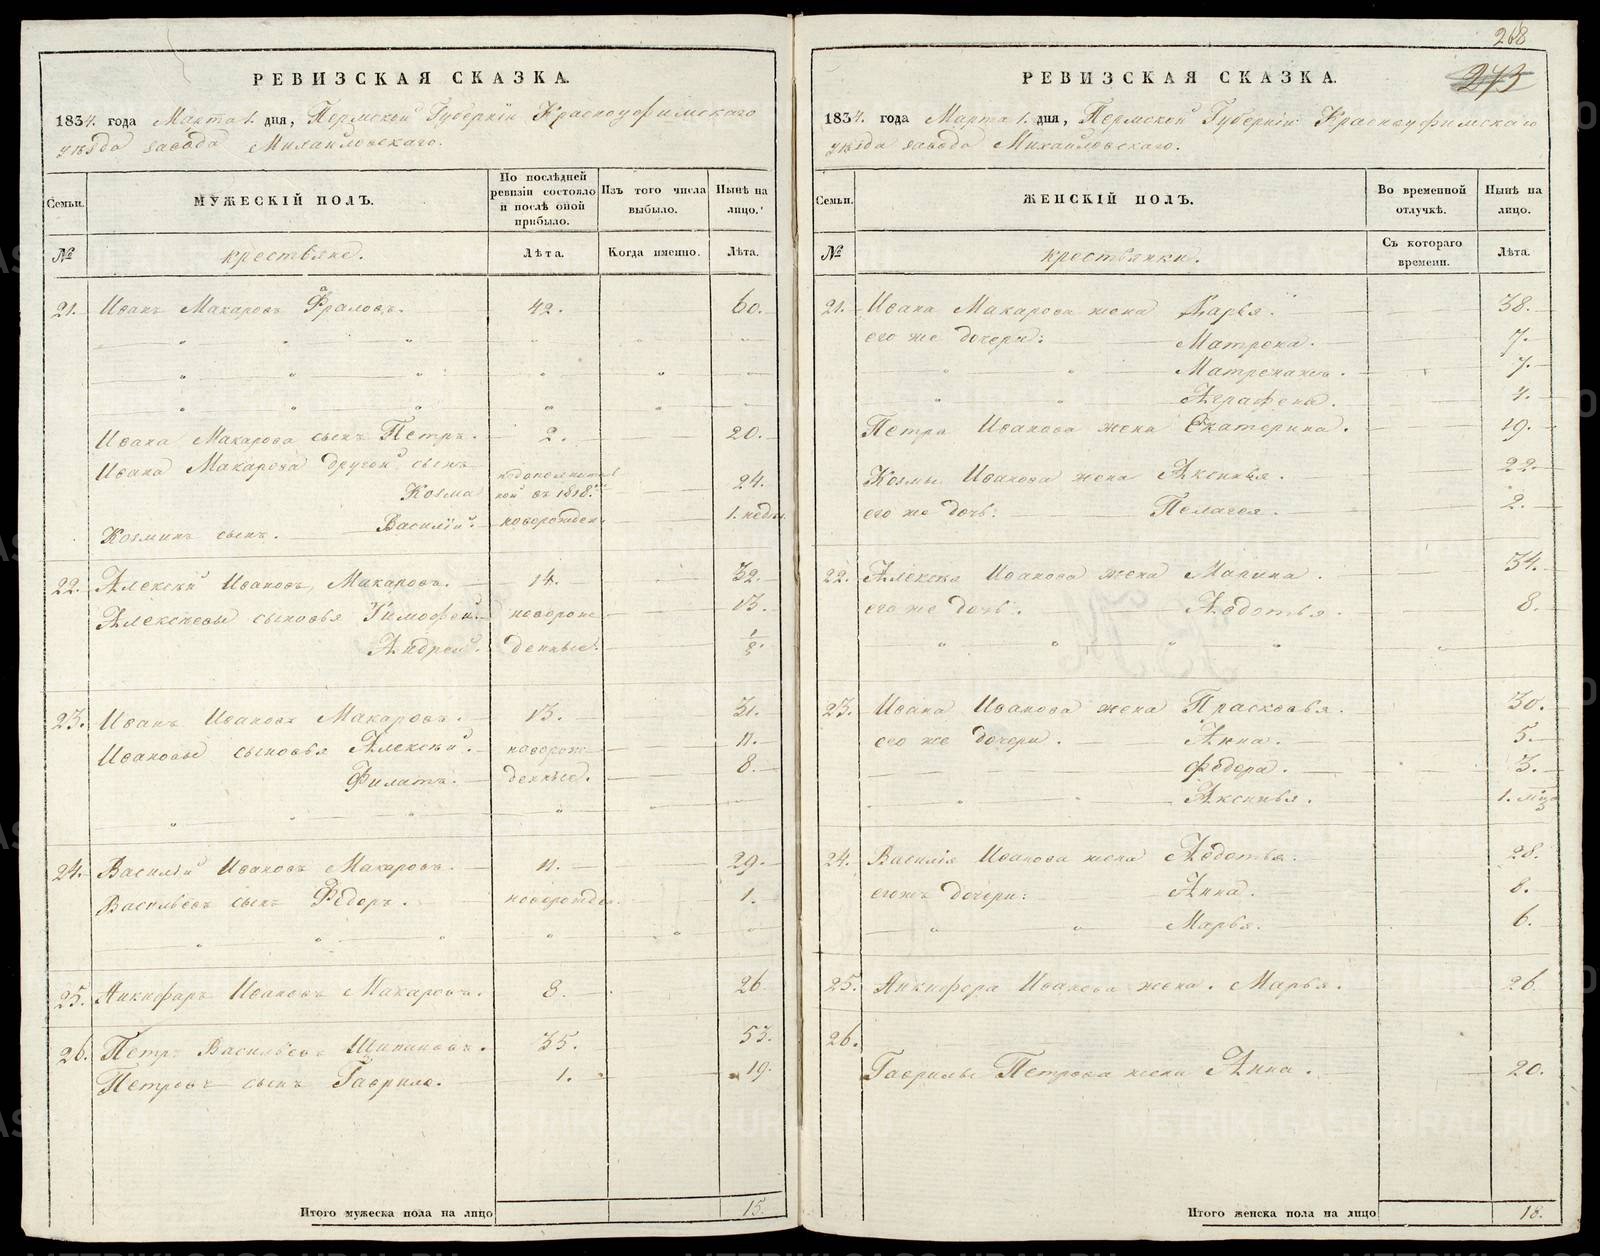 268
273
РЕВИЗСКАЯ СКАЗКА.
1834. года Марта 1. дня, Пермской Губернiи Красноуфимскаго
уѣзда завода Михайловскаго.
Семьи. МУЖЕСКIЙ ПОЛЪ. По послѣдней ревизiи состояло и послѣ оной прибыло. Изъ того числа выбыло. Нынѣ на лицо.
№ крестьяне. Лѣта. Когда именно. Лѣта.
21. Иванъ Макаровъ Фраловъ. 42. 60.
Ивана Макарова сынъ Петръ. 2. 20.
Ивана Макарова другой сынъ
Козма кой въ 1818. 24.
Козминъ сынъ. Василiй. новорожден. 1. недѣл.
22. Алексѣй Ивановъ Макаровъ. 14. 32.
Алексѣевы сыновья Тимофей. новорож 13.
Андрей. денные. 1/2.
23. Иванъ Ивановъ Макаровъ. 13. 31.
Ивановы сыновья Алексѣй. новорож 11.
Филатъ. денные. 8.
24. Василiй Ивановъ Макаровъ. 11. 29.
Васильевъ сынъ Федоръ. новорожден. 1.
25. Никифоръ Ивановъ Макаровъ. 8. 26
26. Петръ Васильевъ Шипицынъ. 35. 53.
Петровъ сынъ Гаврило. 1. 19.
Итого мужеска пола на лицо 15.
РЕВИЗСКАЯ СКАЗКА.
1834. года Марта 1. дня, Пермской Губернiи Красноуфимскаго
уѣзда завода Михайловскаго.
Семьи. ЖЕНСКIЙ ПОЛЪ. Во временной отлучкѣ. Нынѣ на лицо.
№ крестьянки. Съ котораго времени. Лѣта.
21. Ивана Макарова жена Дарья. 38.
его же дочери: Матрена. 7.
Матрена же. 7.
Аграфена. 4.
Петра Иванова жена Екатерина. 19.
Козмы Иванова жена Аксинья. 22.
его же дочь: Пелагея. 2.
22. Алексѣя Иванова жена Марина. 34.
его же дочь. Авдотья. 8.
23. Ивана Иванова жена Прасковья. 30.
его же дочери. Анна. 5.
Федора. 3.
Аксинья. 1.
24. Василiя Иванова жена Авдотья. 28.
егожъ дочери: Анна. 8.
Марья. 6.
25. Никифора Иванова жена. Марья. 26
26.
Гаврилы Петрова жена Анна. 20.
Итого женска пола на лицо 18.
METRIKI.GASO-URAL.RU